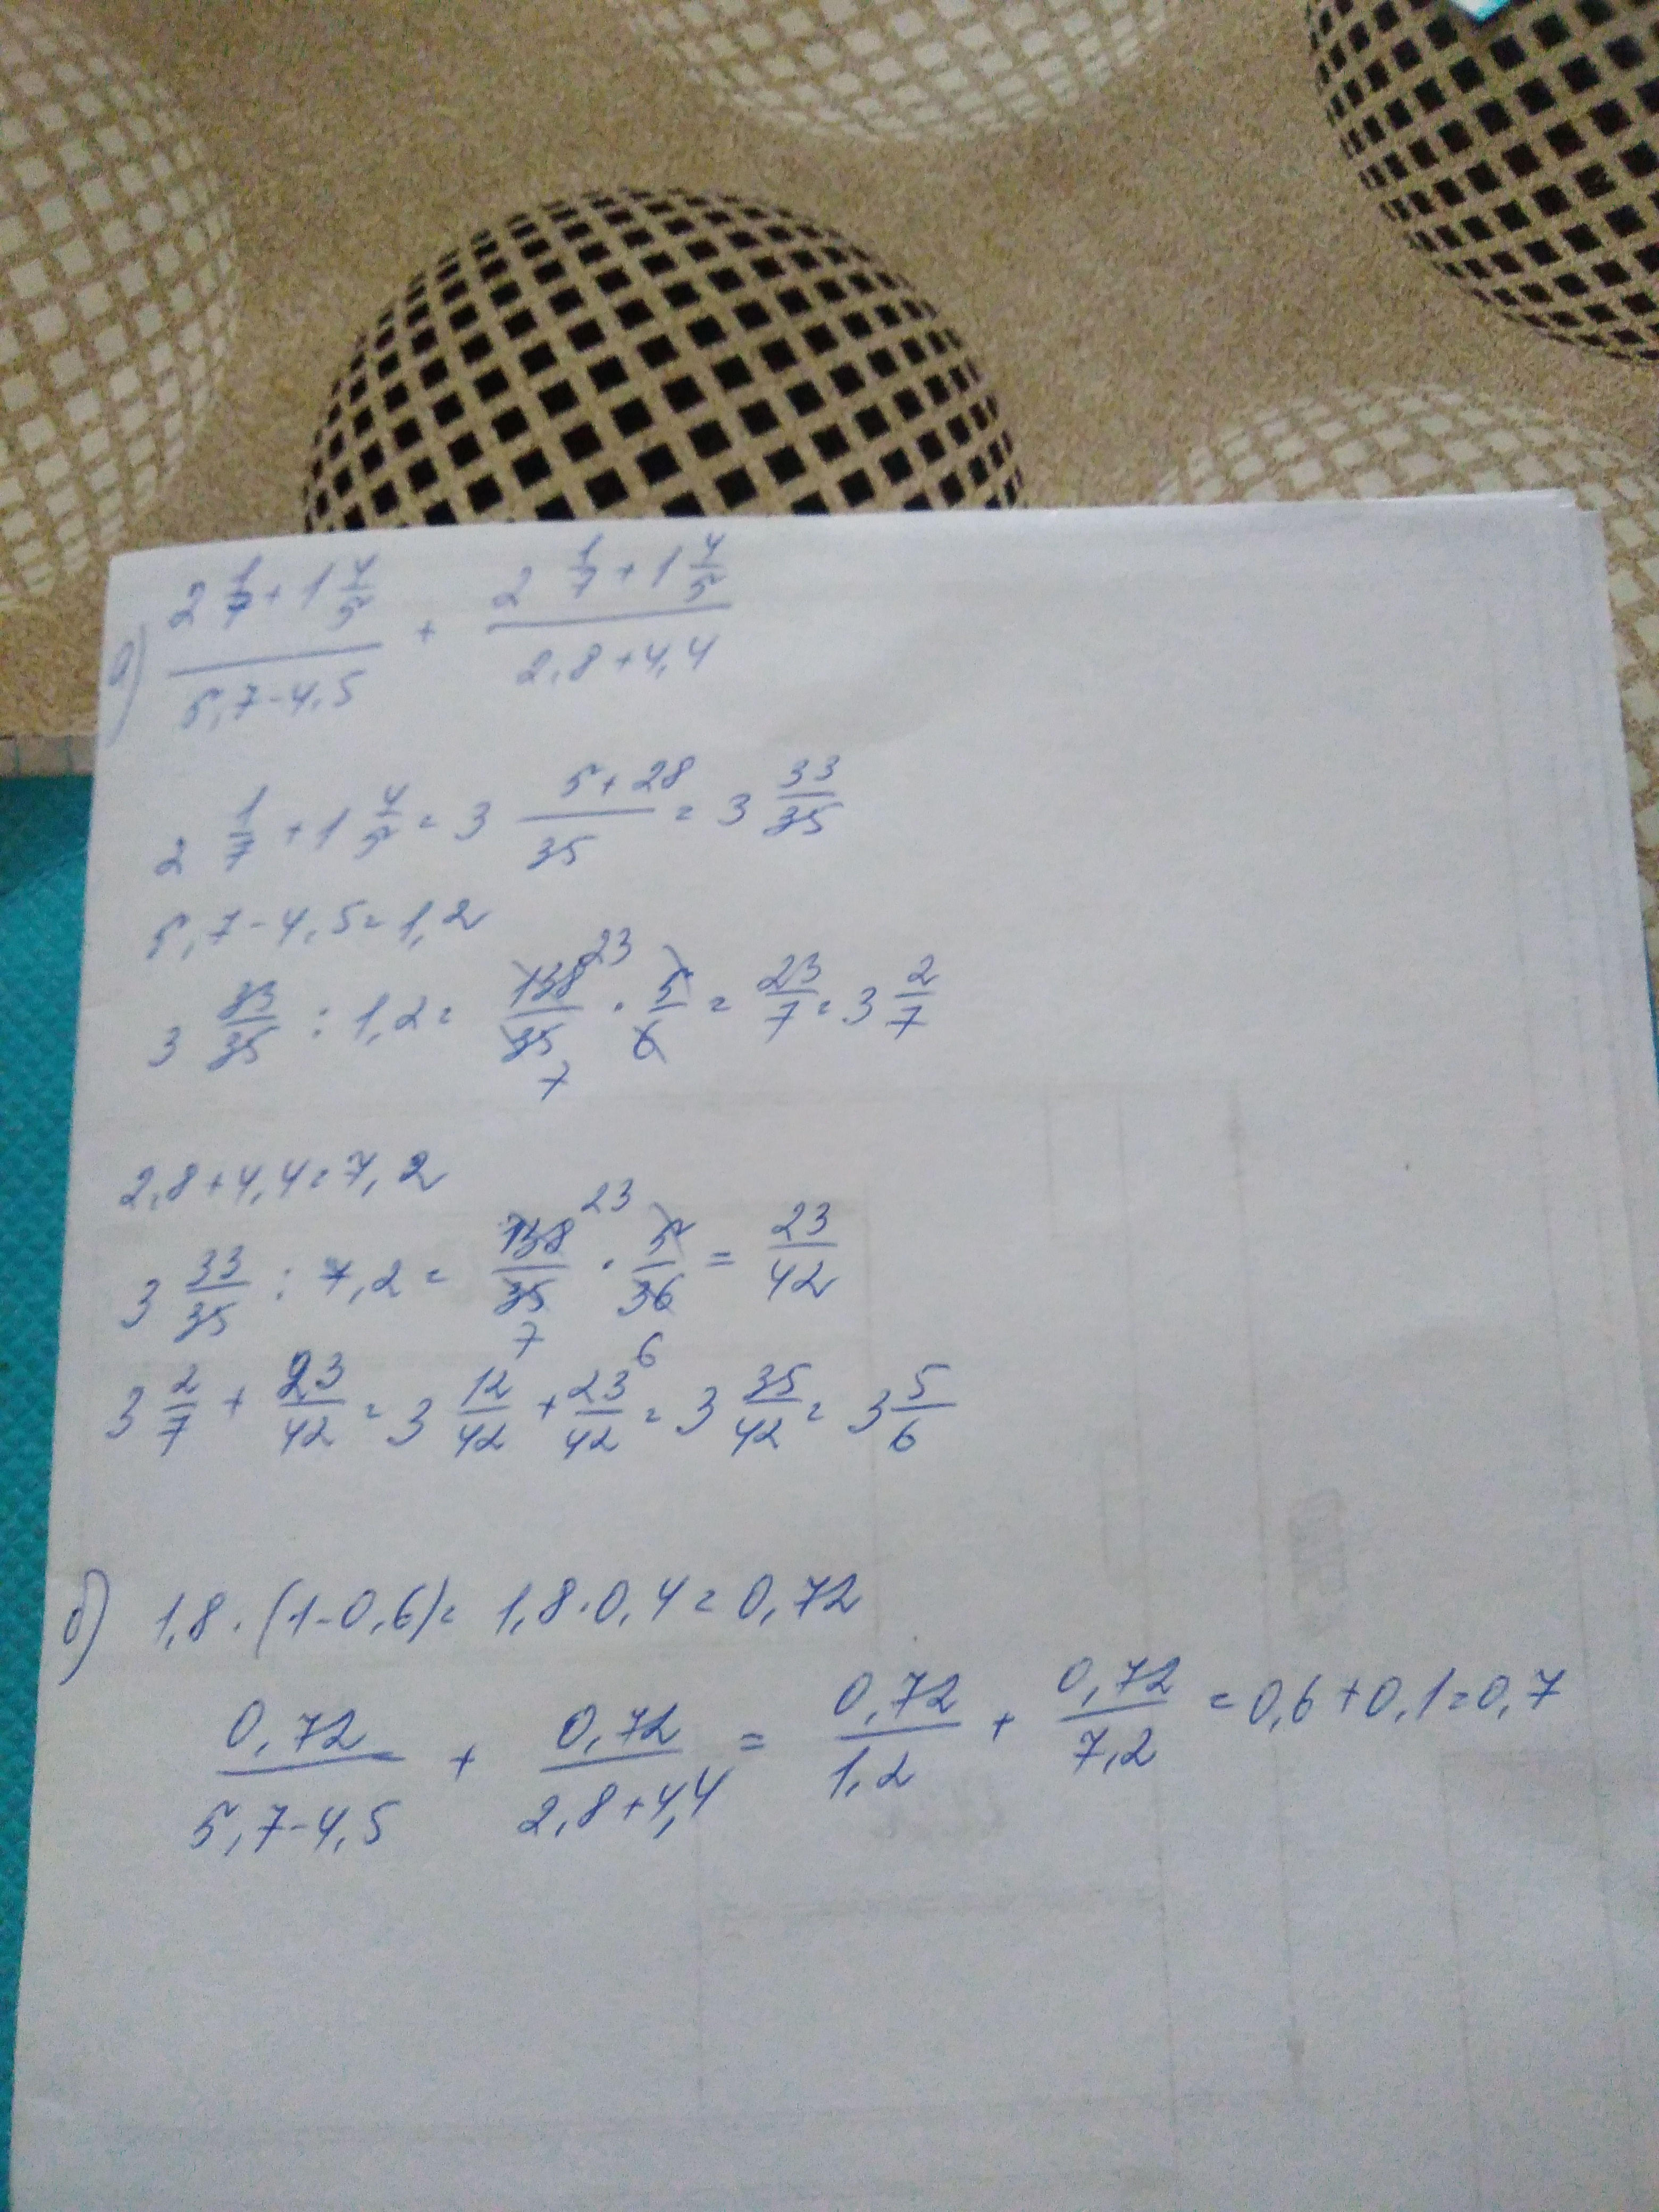 а) (2 1/7 + 1 4/5)/(5,7-4,5) + (2 1/7 + 1 4/5)/(2,8+4,4)
2 1/7 + 1 4/5 = 3 (5+28)/35 = 3 33/35
5,7-4,5=1,2
3 33/35 : 1,2 = 138/35 23 7 · 5/6 = 23/7 = 3 2/7
2,8+4,4=7,2
3 33/35 : 7,2 = 138/35 23 7 · 5/36 6 = 23/42
3 2/7 + 23/42 = 3 12/42 + 23/42 = 3 35/42 = 3 5/6
б) 1,8·(1-0,6)= 1,8·0,4=0,72
0,72/(5,7-4,5) + 0,72/(2,8+4,4) = 0,72/1,2 + 0,72/7,2 = 0,6+0,1=0,7